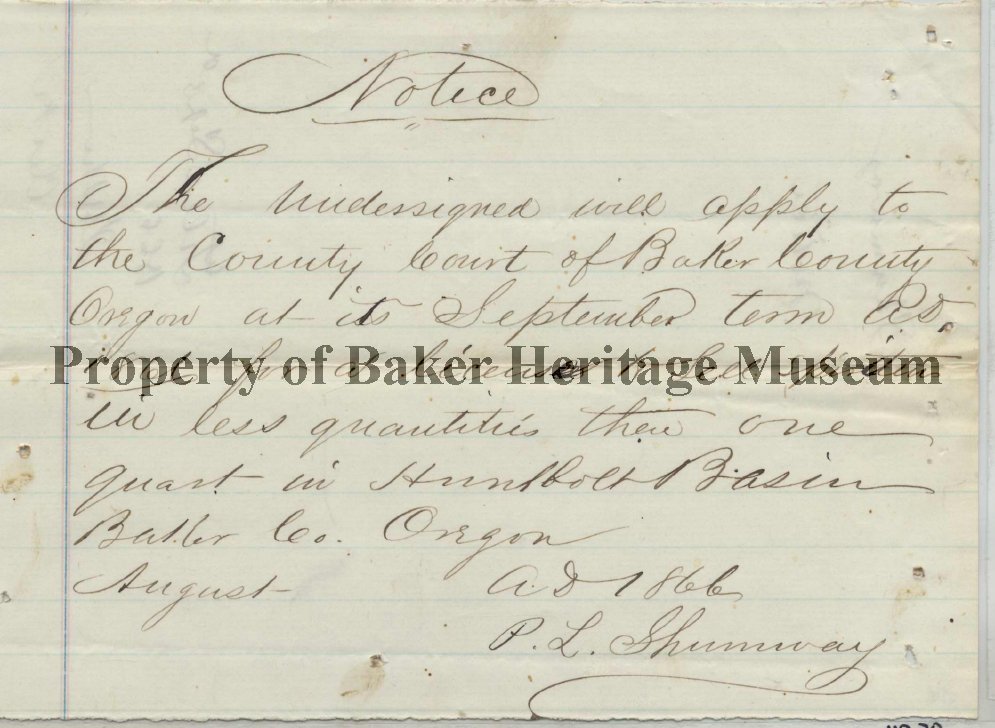 Notice
The Undersigned will apply to
the County Court of Baker County
Oregon at its September term AD
for a license to sell
Property of Baker Heritage Museum
in less quantities then one
quart in Humbolt Basin
Baker Co. Oregon
August A.D 1866
P. L. Shumway